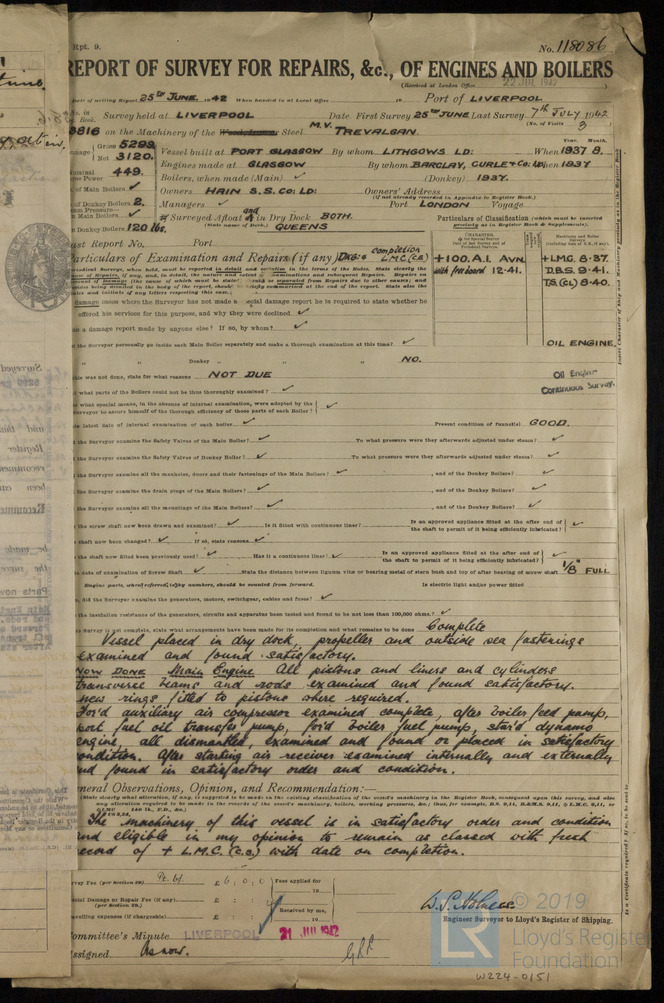 Rpt. 9.
No. 118086
REPORT OF SURVEY FOR REPAIRS, &c., OF ENGINES AND BOILERS
(Received at London Office 22 JUL 1942
of writing Report 25TH JUNE. 1942 When handed in at Local Office 19 Port of LIVERPOOL
No. in Survey held at LIVERPOOL Date First Survey 25TH JUNE Last Survey 7th JULY 1942
Book. (No. of Visits 3)
8816 on the Machinery of the Steel M.V. TREVALGAN.
Gross 5299 Year. Month.
Net 3120. Vessel built at PORT GLASGOW By whom LITHGOWS LD: When 1937 8.
449. Engines made at GLASGOW By whom BARCLAY, CURLE & Co. LD: When 1937
Boilers, when made (Main) ✓ (Donkey) 1937.
of Main Boilers ✓ Owners HAIN S.S. Co: LD: Owners' Address
(if not already recorded in Appendix to Register Book.)
of Donkey Boilers 2. Managers ✓ Port LONDON Voyage
Main Boilers ✓ Surveyed Afloat and in Dry Dock BOTH.
Donkey Boilers 120 lbs. (State name of Dock.) QUEENS
Particulars of Classification (which must be inserted precisely as in Register Book & Supplements).
Last Report No. Port
Particulars of Examination and Repairs (if any) completion L.M.C. (C.S.)
+100.A.1. AVN. with freeboard 12.41.
+L.M.C. 8.37
D.B.S. 9.41.
T.S.(CL) 8.40.
damage cases where the Surveyor has not made a special damage report he is required to state whether he
offered his services for this purpose, and why they were declined ✓
a damage report made by anyone else? If so, by whom? ✓
the Surveyor personally go inside each Main Boiler separately and make a thorough examination at this time? ✓
OIL ENGINE
" " Donkey " " " NO.
this was not done, state for what reasons NOT DUE
Oil Engine
Continuous Survey.
what parts of the Boilers could not be thus thoroughly examined? ✓
what special means, in the absence of internal examination, were adopted by the
Surveyor to assure himself of the thorough efficiency of those parts of each Boiler? ✓
latest date of internal examination of each boiler ✓ Present condition of funnel(s) GOOD.
the Surveyor examine the Safety Valves of the Main Boiler? ✓ To what pressure were they afterwards adjusted under steam? ✓
the Surveyor examine the Safety Valves of Donkey Boiler? ✓ To what pressure were they afterwards adjusted under steam? ✓
the Surveyor examine all the manholes, doors and their fastenings of the Main Boilers? ✓ , and of the Donkey Boilers? ✓
the Surveyor examine the drain plugs of the Main Boilers? ✓ , and of the Donkey Boilers? ✓
the Surveyor examine all the mountings of the Main Boilers? ✓ , and of the Donkey Boilers? ✓
the screw shaft now been drawn and examined? ✓ Is it fitted with continuous liner? ✓ Is an approved appliance fitted at the after end of
the shaft to permit of it being efficiently lubricated? ✓
shaft now been changed? ✓ If so, state reasons ✓
the shaft now fitted been previously used? ✓ Has it a continuous liner? ✓ Is an approved appliance fitted at the after end of
the shaft to permit of it being efficiently lubricated? ✓
date of examination of Screw Shaft ✓ State the distance between lignum vitæ or bearing metal of stern bush and top of after bearing of screw shaft 1/8" FULL
Engine parts, when referred to by numbers, should be counted from forward. Is electric light and/or power fitted
did the Surveyor examine the generators, motors, switchgear, cables and fuses? ✓
the insulation resistance of the generators, circuits and apparatus been tested and found to be not less than 100,000 ohms? ✓
Survey is not complete, state what arrangements have been made for its completion and what remains to be done Complete
Vessel placed in dry dock, propeller and outside sea fastenings
examined and found satisfactory.
NOW DONE Main Engine All pistons and liners and cylinders
transverse beams and rods examined and found satisfactory.
new rings fitted to pistons where required.
For'd auxiliary air compressor examined complete, after boiler feed pump,
port fuel oil transfer pump, for'd boiler fuel pump, star'd dynamo
engine, all dismantled, examined and found or placed in satisfactory
condition. After starting air receiver examined internally and externally
and found in satisfactory order and condition.
General Observations, Opinion, and Recommendation:—
The machinery of this vessel is in satisfactory order and condition
and eligible in my opinion to remain as classed with fresh
record of + L.M.C. (C.S.) with date on completion.
Survey Fee (per Section 29) £ 6 : 0 : 0 Fees applied for
19
Special Damage or Repair Fee (if any) £ : :
(per Section 29.)
Received by me,
Travelling expenses (if chargeable) £ : : 19
Engineer Surveyor to Lloyd's Register of Shipping.
Committee's Minute LIVERPOOL 21 JUL 1942
Assigned As now.
© 2019
Lloyd's Register
Foundation
W224-0151